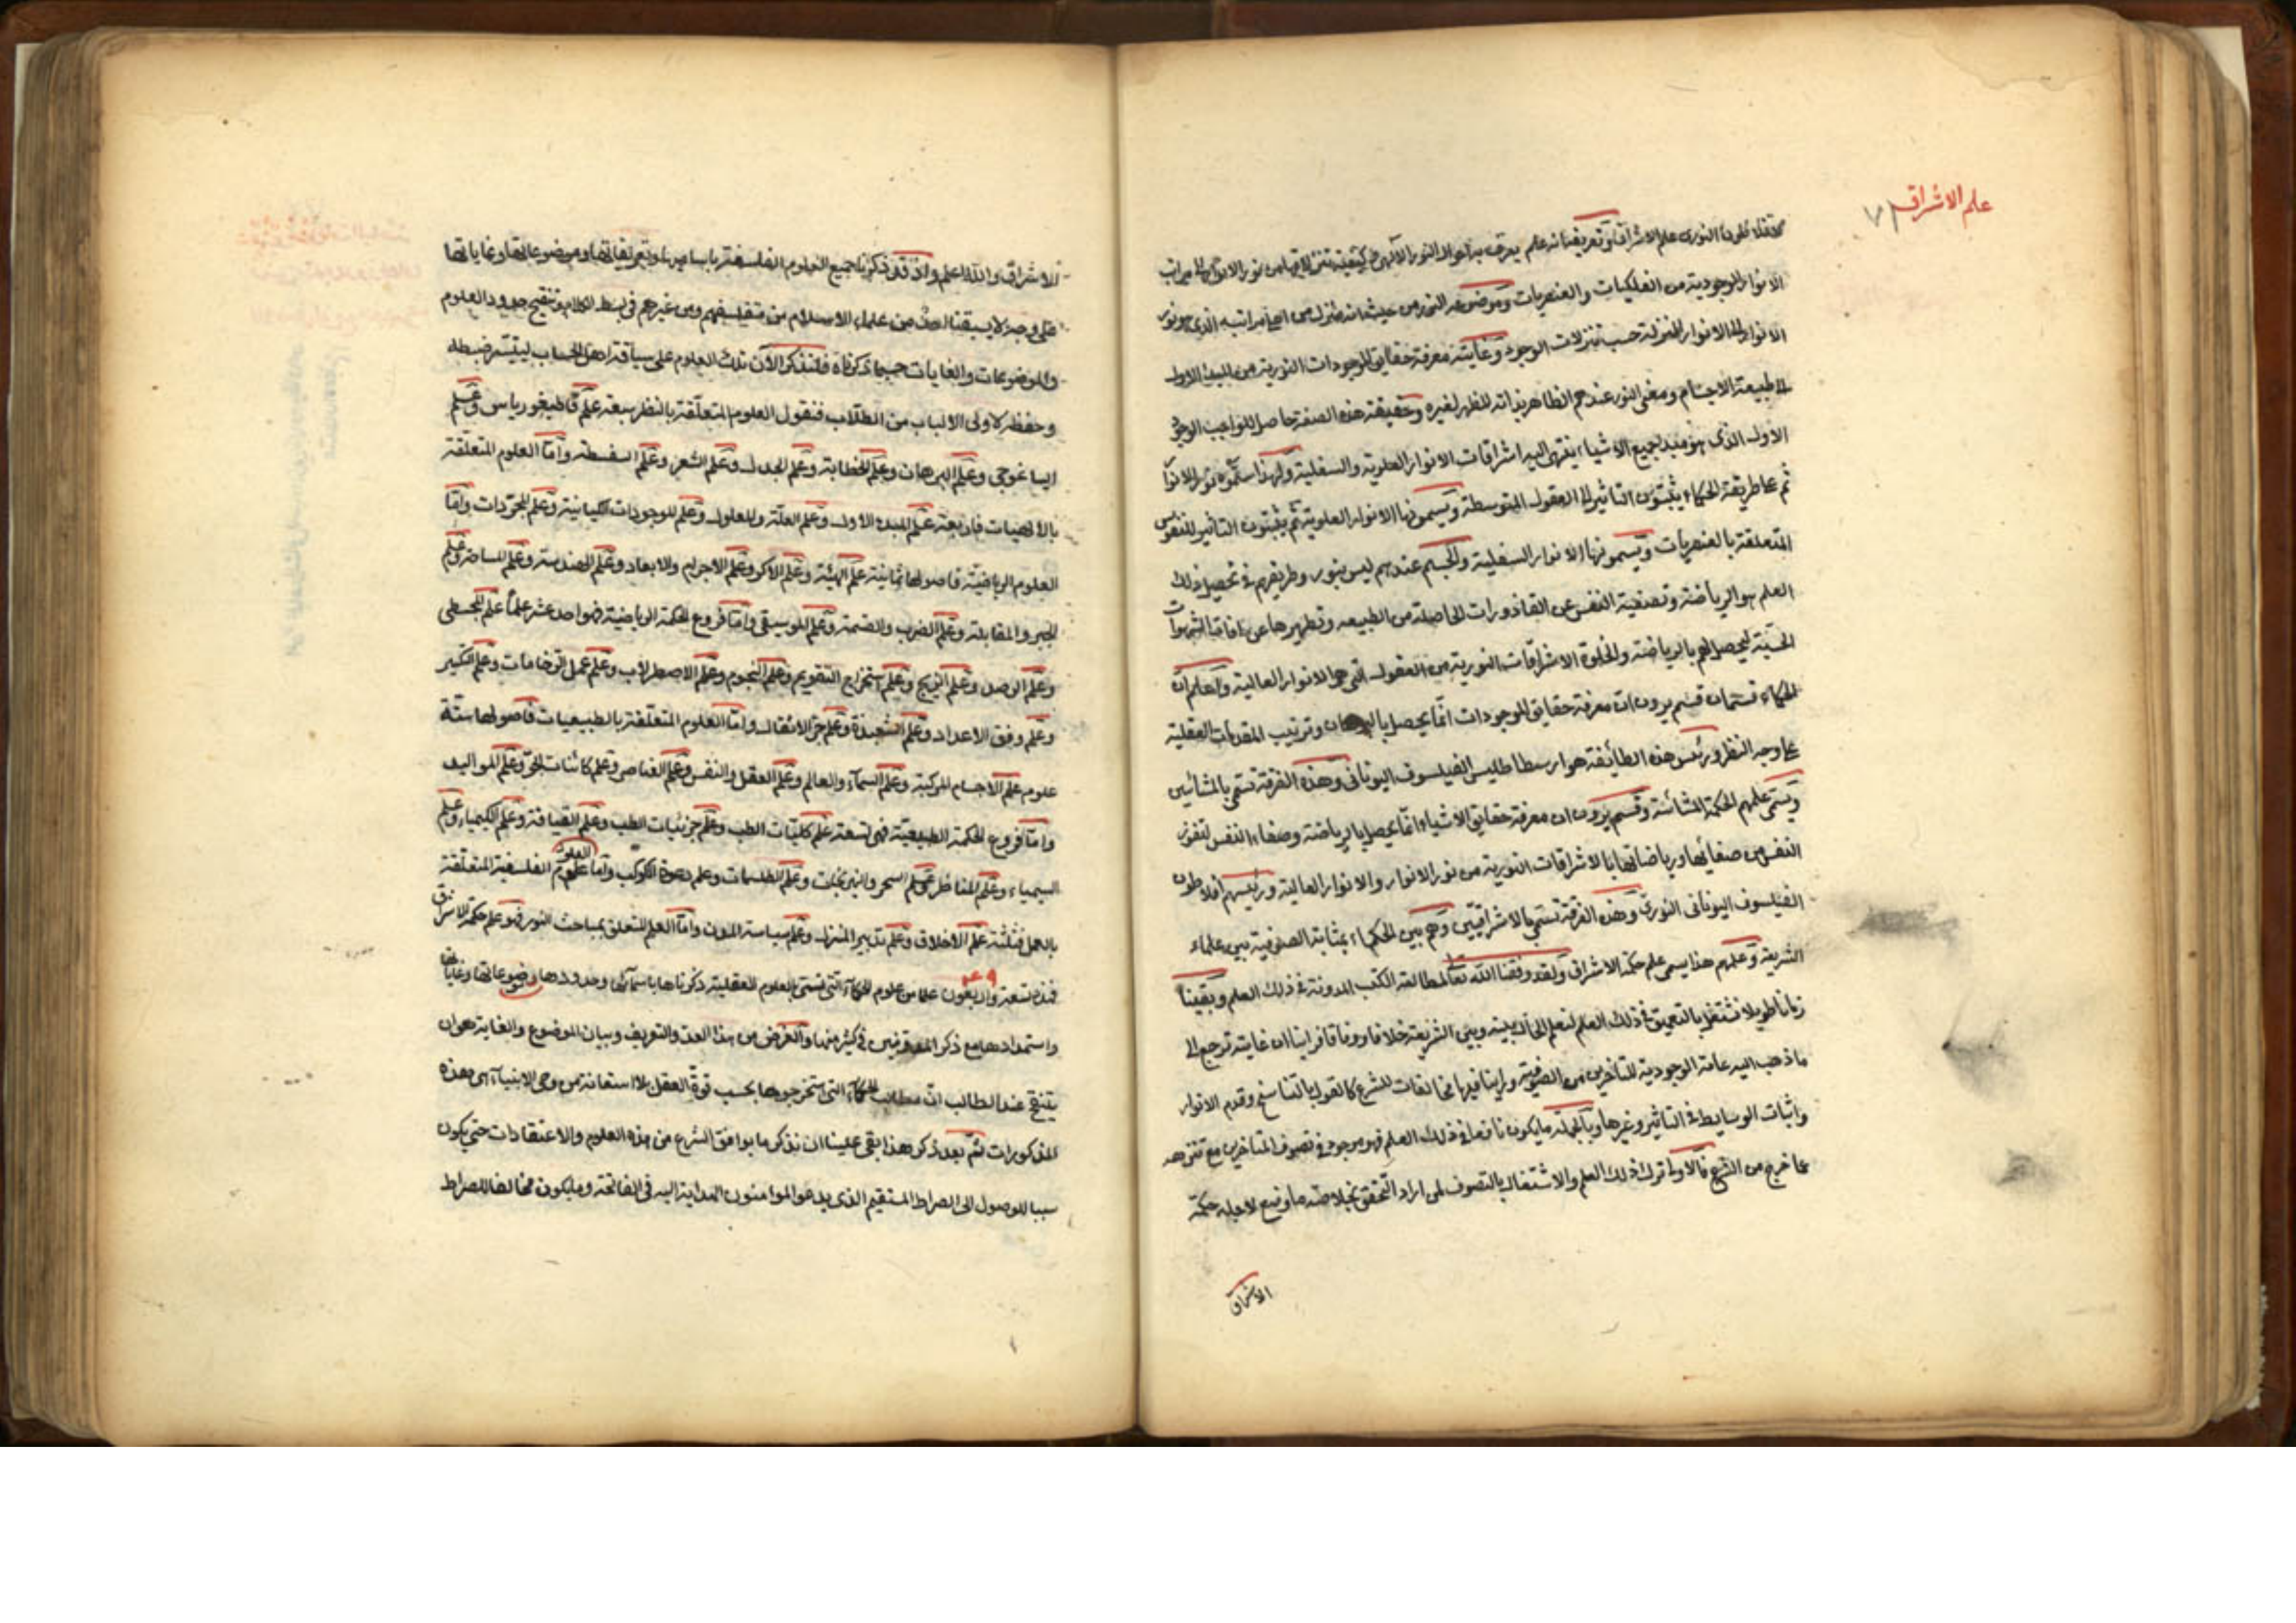 علم الاشراق ٧١
افلاطون النورى علم الاشراق وتعريفنا انه علم يعرف به احوال النور الالهى وكيفية تنزلاته من نور الانوار الى مراتب
الانوار الوجودية من الفلكيات والعنصريات وموضوعه النور من حيث انه منزل من اعلى مراتبه الذى هو نور
الانوار الى الانوار المنزلة حسب تنزلات الوجود وغايته معرفة حقايق الموجودات النورية من المبدأ الاول
الى طبيعة الاجسام ومعنى النور عندهم الظاهر بذاته المظهر لغيره وحقيقة هذه الصفة حاصل للواجب الوجود
الاول الذى هو مبدء لجميع الاشياء ينتهى اليه اشراقات الانوار العلوية والسفلية ولهذا سموه نور الانوار
ثم على طريقة الحكماء يثبتون التاثير الى العقول المتوسطة ويسمونها الانوار العلوية ثم يثبتون التاثير للنفوس
المتعلقة بالعنصريات ويسمونها الانوار السفلية والجسم عندهم ليس بنور وطريقهم فى تحصيل ذلك
العلم هو الرياضة وتصفية النفس عن القاذورات الحاصلة من الطبيعه وتطهيرها عن افات الشهوات
الحسّية ليحصل لهم بالرياضة والخلوة الاشراقات النورية من العقول التى هو الانوار العالية واعلم ان
الحكماء قسمان قسم يرون ان معرفة حقايق الموجودات انما يحصل بالبرهان وترتيب المقدمات العقلية
على وجه النظر ورئيس هذه الطائفة هو ارسطاطليس الفيلسوف اليونانى وهذه الفرقة تسمى بالمشائين
ويسمى علمهم الحكمة المشائية وقسم يرون ان معرفة حقايق الاشياء انما يحصل بالرياضة وصفاء النفس لتفوز
النفس من صفائها ورياضاتها بالاشراقات النورية من نور الانوار والانوار العالية ورئيسهم افلاطون
الفيلسوف اليونانى النورى وهذه الفرقة تسمى بالاشراقيين وهم بين الحكماء بمثابة الصوفية بين علماء
الشريعة وعلمهم هذا يسمى علم حكمة الاشراق ولقد وفقنا الله تعالى لمطالعة الكتب المدونة فى ذلك العلم وبقينا
زمانا طويلا نشتغل بالتعمق فى ذلك العلم لنعلم الحال بينه وبين الشريعة خلافا ووفاقا فراينا ان غايته ترجع الى
ما ذهب اليه عامة الوجودية المتاخرين من الصوفية وراينا فيها مخالفات للشرع كالقول بالتناسخ وقدم الانوار
واثبات الوسايط فى التاثير وغيرها وبالجملة ما يكون نافعا فى ذلك العلم فهو موجود فى تصوف المتاخرين مع تنزهه
عما خرج من الشرع فالاولى ترك ذلك العلم والاشتغال بالتصوف لمن اراد التحقق بخلاصة ما وضع لاجله حكمة
الاشراق
الاشراق والله اعلم واذ قد ذكرنا جميع العلوم الفلسفة باساميها وتعريفاتها وموضوعاتها وغاياتها
على وجه لا يسبقنا احد من علماء الاسلام من متفلسفهم ومن غيرهم فى بسط الكلام وتنقيح حدود العلوم
والموضوعات والغايات حسبما ذكرناه فلنذكر الآن تلك العلوم على سياقة اهل الحساب ليتيسر ضبطه
وحفظه لاولى الالباب من الطلاب فنقول العلوم المتعلقة بالنظر سبعة علم قاطيغورياس وعلم
ايساغوجى وعلم البرهان وعلم الخطابة وعلم الجدل وعلم الشعر وعلم السفسطة واما العلوم المتعلقة
بالالهيات فاربعة علم المبدء الاول وعلم العلة والمعلول وعلم الموجودات الكيانية وعلم المجردات واما
العلوم الرياضية فاصولها ثمانية علم الهيئة وعلم الاكر وعلم الاجرام والابعاد وعلم الهندسة وعلم المساحة وعلم
الجبر والمقابلة وعلم الضرب والقسمة وعلم الموسيقى واما فروع الحكمة الرياضية فهو احد عشر علماً علم المجسطى
وعلم الرصد وعلم الزيج وعلم استخراج التقويم وعلم النجوم وعلم الاصطرلاب وعلم عمل الرخامات وعلم التكسير
وعلم وفق الاعداد وعلم الشعبذة وعلم جر الاثقال واما العلوم المتعلقة بالطبيعيات فاصولها ستة
علوم علم الاجسام المركبة وعلم السمآء والعالم وعلم العقل والنفس وعلم العناصر وعلم كائنات الجو وعلم المواليد
واما فروع الحكمة الطبيعية فهى تسعة علم كليات الطب وعلم جزئيات الطب وعلم القيافة وعلم الكيمياء وعلم
السيمياء وعلم المناظر وعلم السحر والنيرنجات وعلم الطلسمات وعلم دعوة الكواكب واما العلوم الفلسفية المتعلقة
بالعمل فثلثة علم الاخلاق وعلم تدبير المنزل وعلم سياسة المدن واما العلم المتعلق بمباحث النور فهو علم حكمة الاشراق
فهذه تسعة واربعون علما من علوم الحكمآء التى تسمى بالعلوم العقلية ذكرناها باسمائها وحدودها وموضوعاتها وغاياتها
واستمدادها مع ذكر فى كثير منها والغرض من هذا العد والتعريف وبيان الموضوع والغاية هو ان
يتنقح عند الطالب ان مطالب الحكمآء التى استخرجوها بحسب قوة العقل بلا استعانة من وحى الانبيآء هى هذه
المذكورات ثم بعد ذكر هذا بقى علينا ان نذكر ما يوافق الشرع من هذه العلوم والاعتقادات حتى يكون
سببا للوصول الى الصراط المستقيم الذى يدعو المؤمنون الهداية اليه فى الفاتحة وما يكون مخالفا للصراط